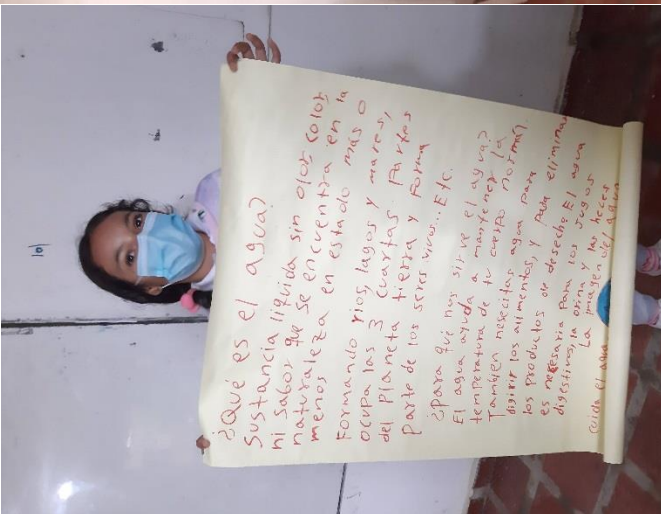 ¿Qué es el agua?
Sustancia liquida sin olor, color
ni sabor que se encuentra en la
naturaleza en estado más o
menos
Formando rios, lagos y mares,
ocupa las 3 cuartas Partes
del Planeta tierra y Forma
Parte de los seres vivos... Etc.
¿para qué nos sirve el agua?
El agua ayuda a mantener la
temperatura de tu cuerpo normal.
Tambien nesecitas agua para
digirir los alimentos, y para eliminar
los productos de desecho El agua
es necesaria para los jugos
digestivos, la orina y las heces
La imagen del agua
cuida el agua